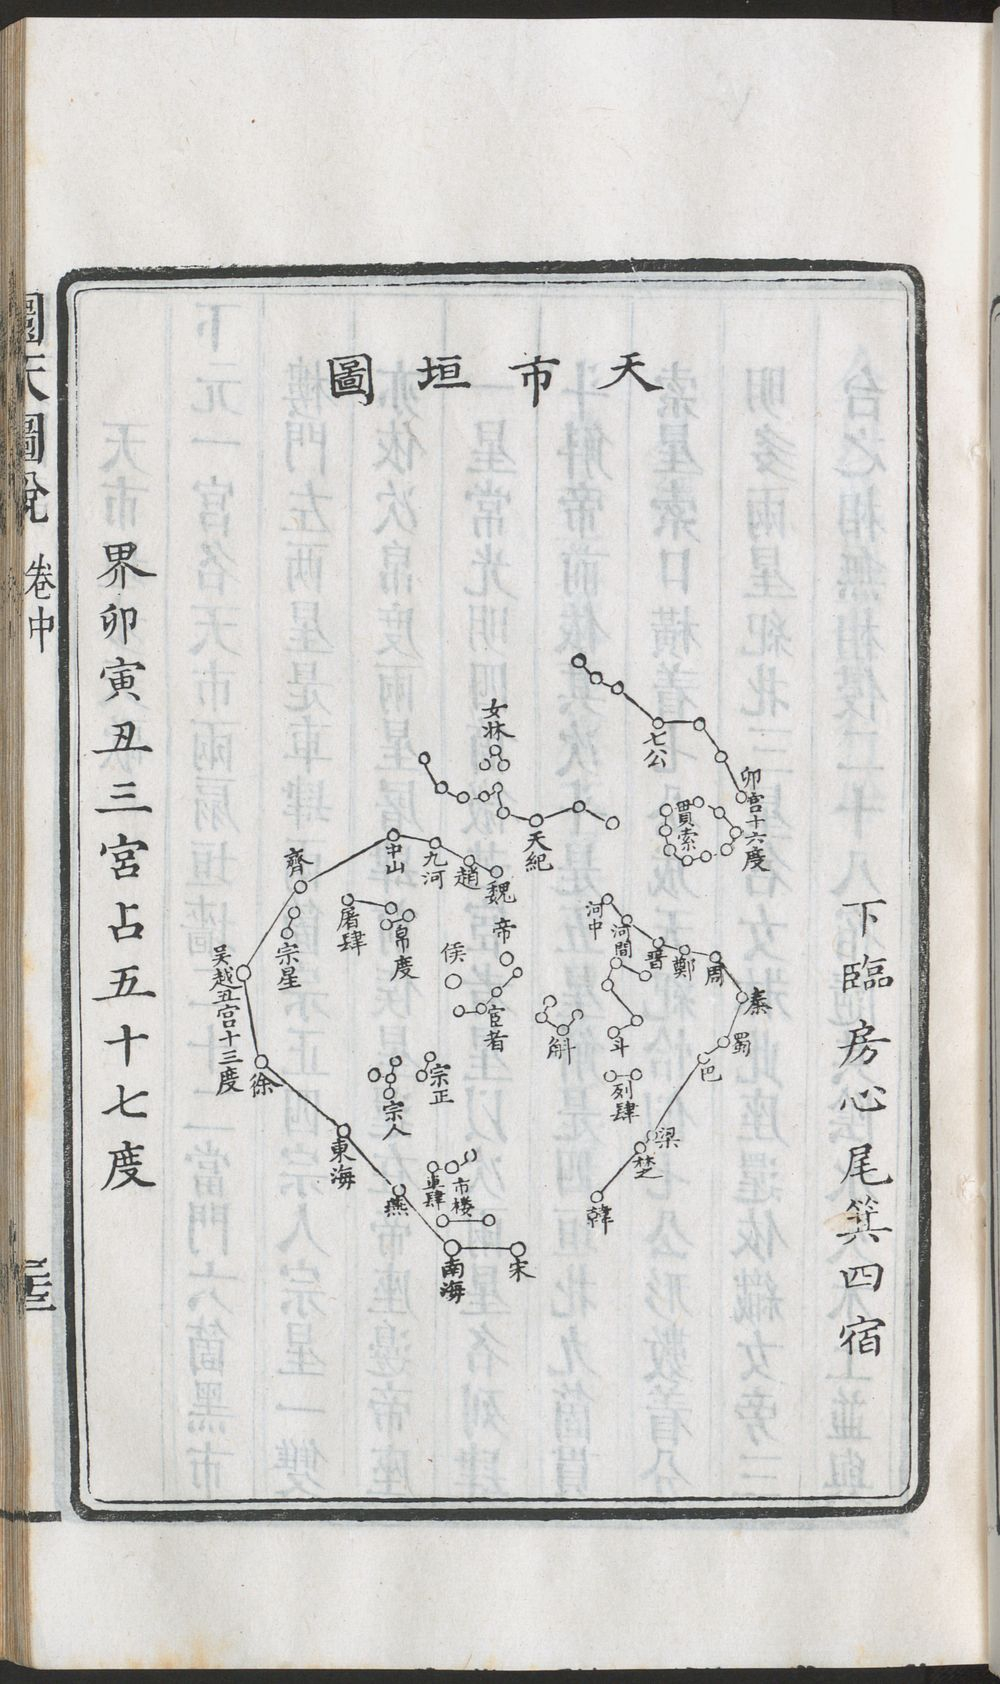 天市垣圖
下臨房心尾箕四宿
卯宮十六度
七公
貫索
女牀
天紀
河中
河間
晉
鄭
周
秦
蜀
巴
梁
楚
韓
斗
列肆
斛
魏
趙
九河
中山
齊
帝
侯
宦者
帛度
屠肆
宗星
吴越丑宮十三度
徐
宗正
宗人
東海
市樓
車肆
燕
南海
宋
界卯寅丑三宮占五十七度
圜天圖說
卷中